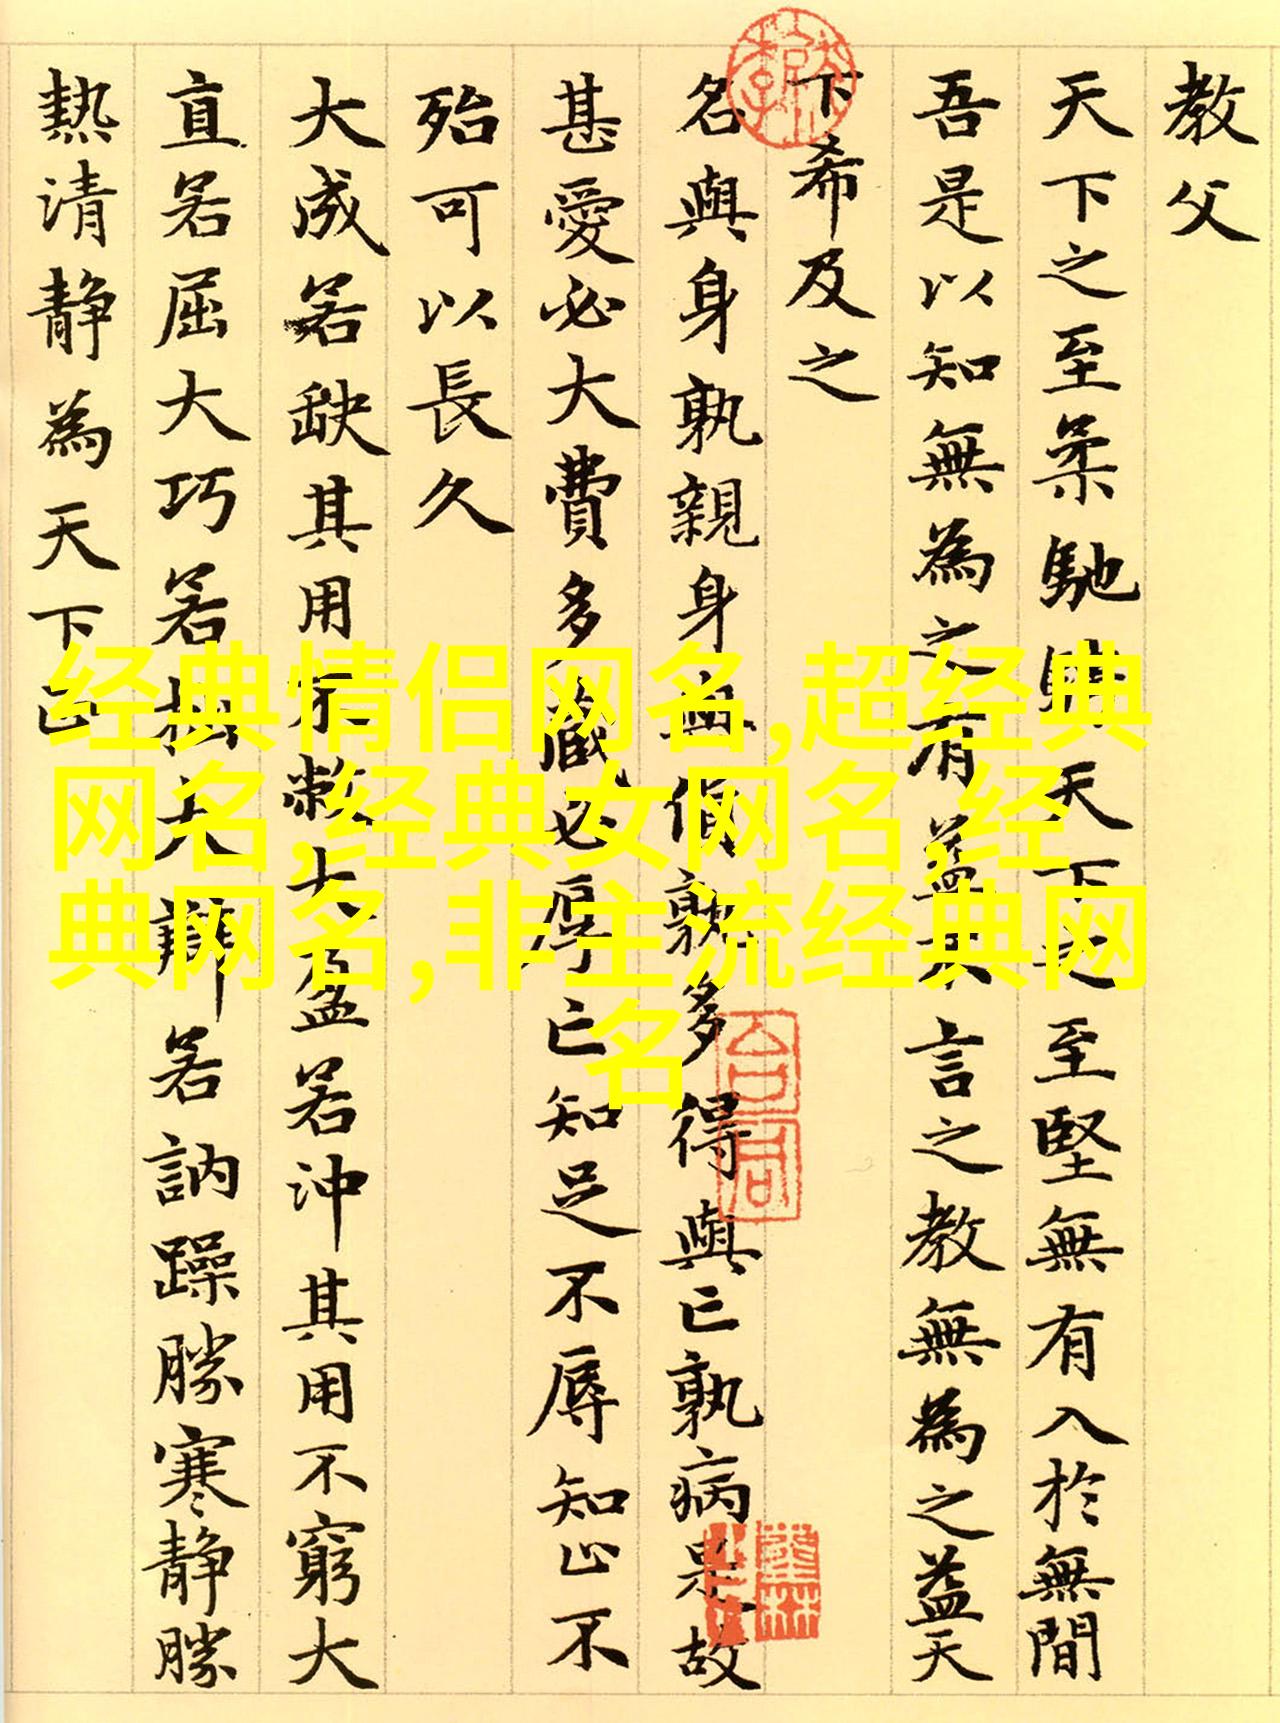 教父
天下之至柔馳騁天下之至堅無有入於無間
吾是以知無為之有益不言之教無為之益天
下希及之
名與身孰親身與貨孰多得與亡孰病是故
甚愛必大費多藏必厚亡知足不辱知止不
殆可以長久
大成若缺其用不敝大盈若沖其用不窮大
直若屈大巧若拙大辯若訥躁勝寒静勝
熱清静為天下正
经典情侣网名,超经典
网名,经典女网名,经
典网名,非主流经典网
名